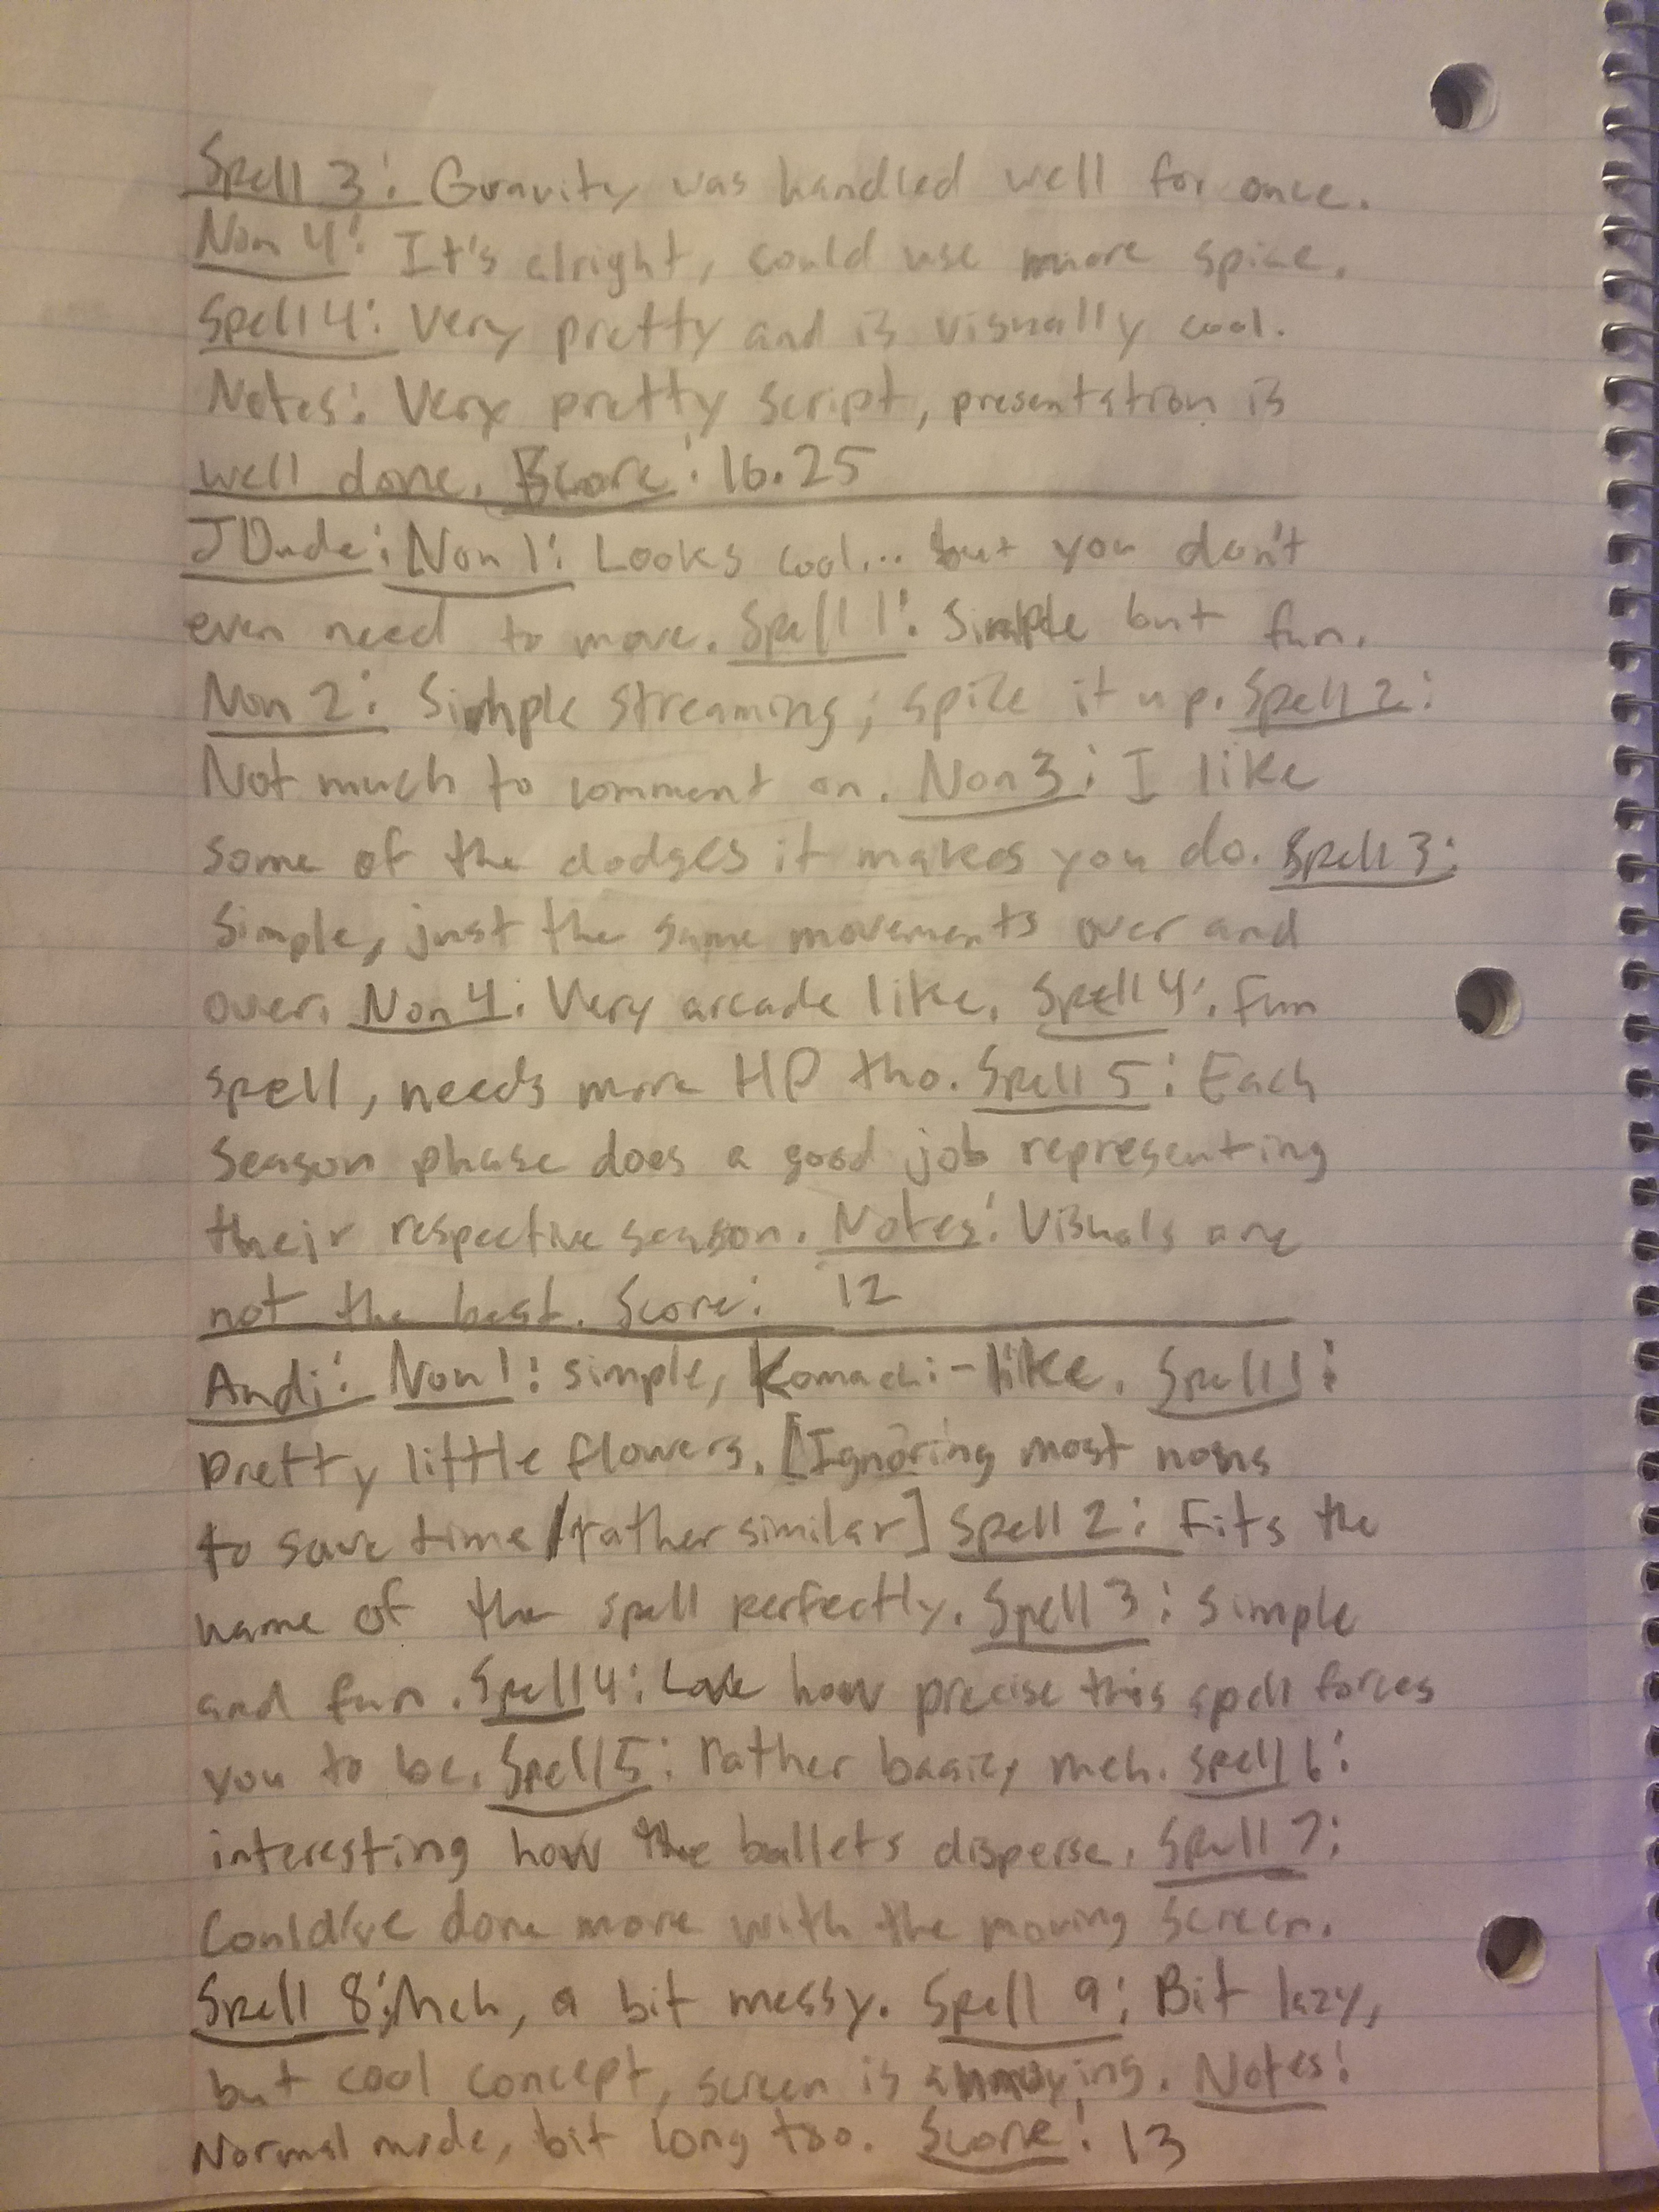 Spell 3: Gravity was handled well for once.
Non 4: It's alright, could use more spice.
Spell 4: Very pretty and is visually cool.
Notes: Very pretty script, presentation is
well done. Score: 16.25
JDude: Non 1: Looks cool... but you don't
even need to move. Spell 1: Simple but fun.
Non 2: Simple streaming, spice it up. Spell 2:
Not much to comment on. Non 3: I like
some of the dodges it makes you do. Spell 3:
Simple, just the same movements over and
over. Non 4: Very arcade like. Spell 4: Fun
spell, needs more HP tho. Spell 5: Each
season phase does a good job representing
their respective season. Notes: Visuals are
not the best. Score: 12
Andi: Non 1: simple, Komachi-like. Spell 1:
Pretty little flowers. [Ignoring most nons
to save time/rather similar] Spell 2: Fits the
name of the spell perfectly. Spell 3: Simple
and fun. Spell 4: Love how precise this spell forces
you to be. Spell 5: rather basic, meh. Spell 6:
interesting how the bullets disperse. Spell 7:
Could've done more with the moving screen.
Spell 8: Meh, a bit messy. Spell 9: Bit lazy,
but cool concept, screen is annoying. Notes:
Normal mode, bit long too. Score: 13